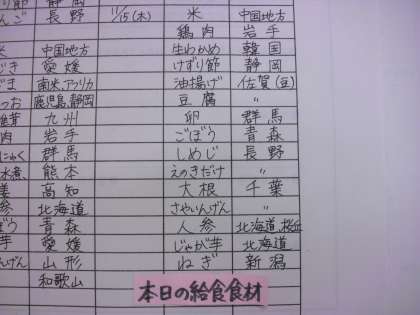 り節 静岡
んご 長野 11/15(木) 米 中国地方
鶏肉 岩手
米 中国地方 生わかめ 韓国
じき 愛媛 けずり節 静岡
ごま 南米、アフリカ 油揚げ 佐賀(豆)
つお 鹿児島、静岡 豆腐 〃
椎茸 九州 卵 群馬
肉 岩手 ごぼう 青森
にゃく 群馬 しめじ 長野
水煮 熊本 えのきだけ 〃
高知 大根 千葉
参 北海道 さやいんげん 〃
ぼう 青森 人参 北海道、桜丘
芋 愛媛 じゃが芋 北海道
んげん 山形 ねぎ 新潟
和歌山
本日の給食食材